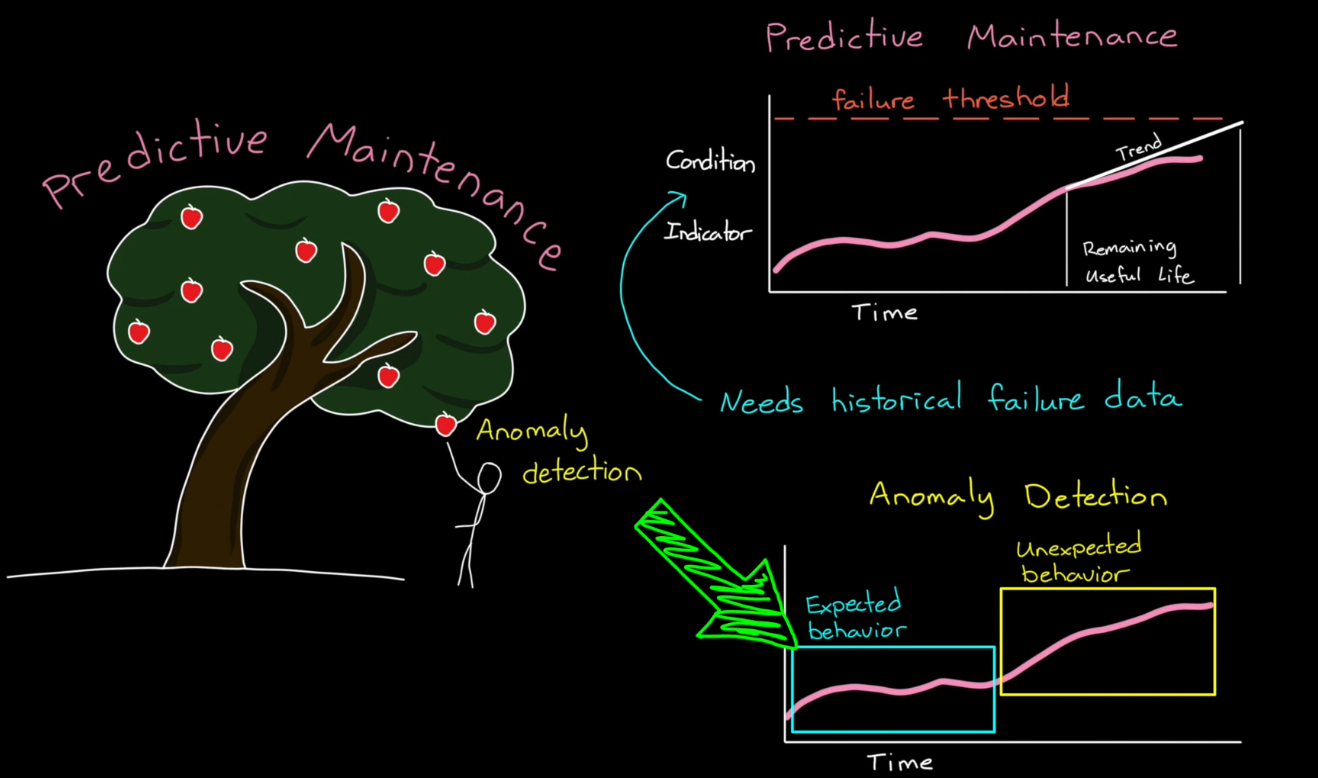 Predictive Maintenance
Anomaly
detection
Predictive Maintenance
failure threshold
Condition
Indicator
Trend
Remaining
Useful Life
Time
Needs historical failure data
Anomaly Detection
Unexpected
behavior
Expected
behavior
Time